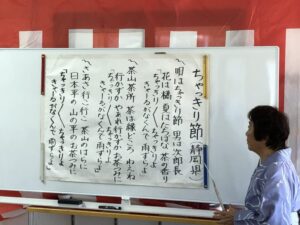 ちゃっきり節(静岡県)
唄はちゃっきり節 男は次郎長
花は橘 夏はたちばな 茶の香り
ちゃっきり ちゃっきり ちゃっきりよ
きゃーるがなくんで 雨ずらよ
茶山茶所 茶は縁どころ ねえね
行かずか やあれ行かずか お茶つみに
ちゃっきり ちゃっきり ちゃっきりよ
きゃーるがなくんで 雨ずらよ
さあさ行こ行こ 茶山のはらに
日本平の 山の平の お茶つみに
ちゃっきり
きゃーるがなくんで 雨ずらよ